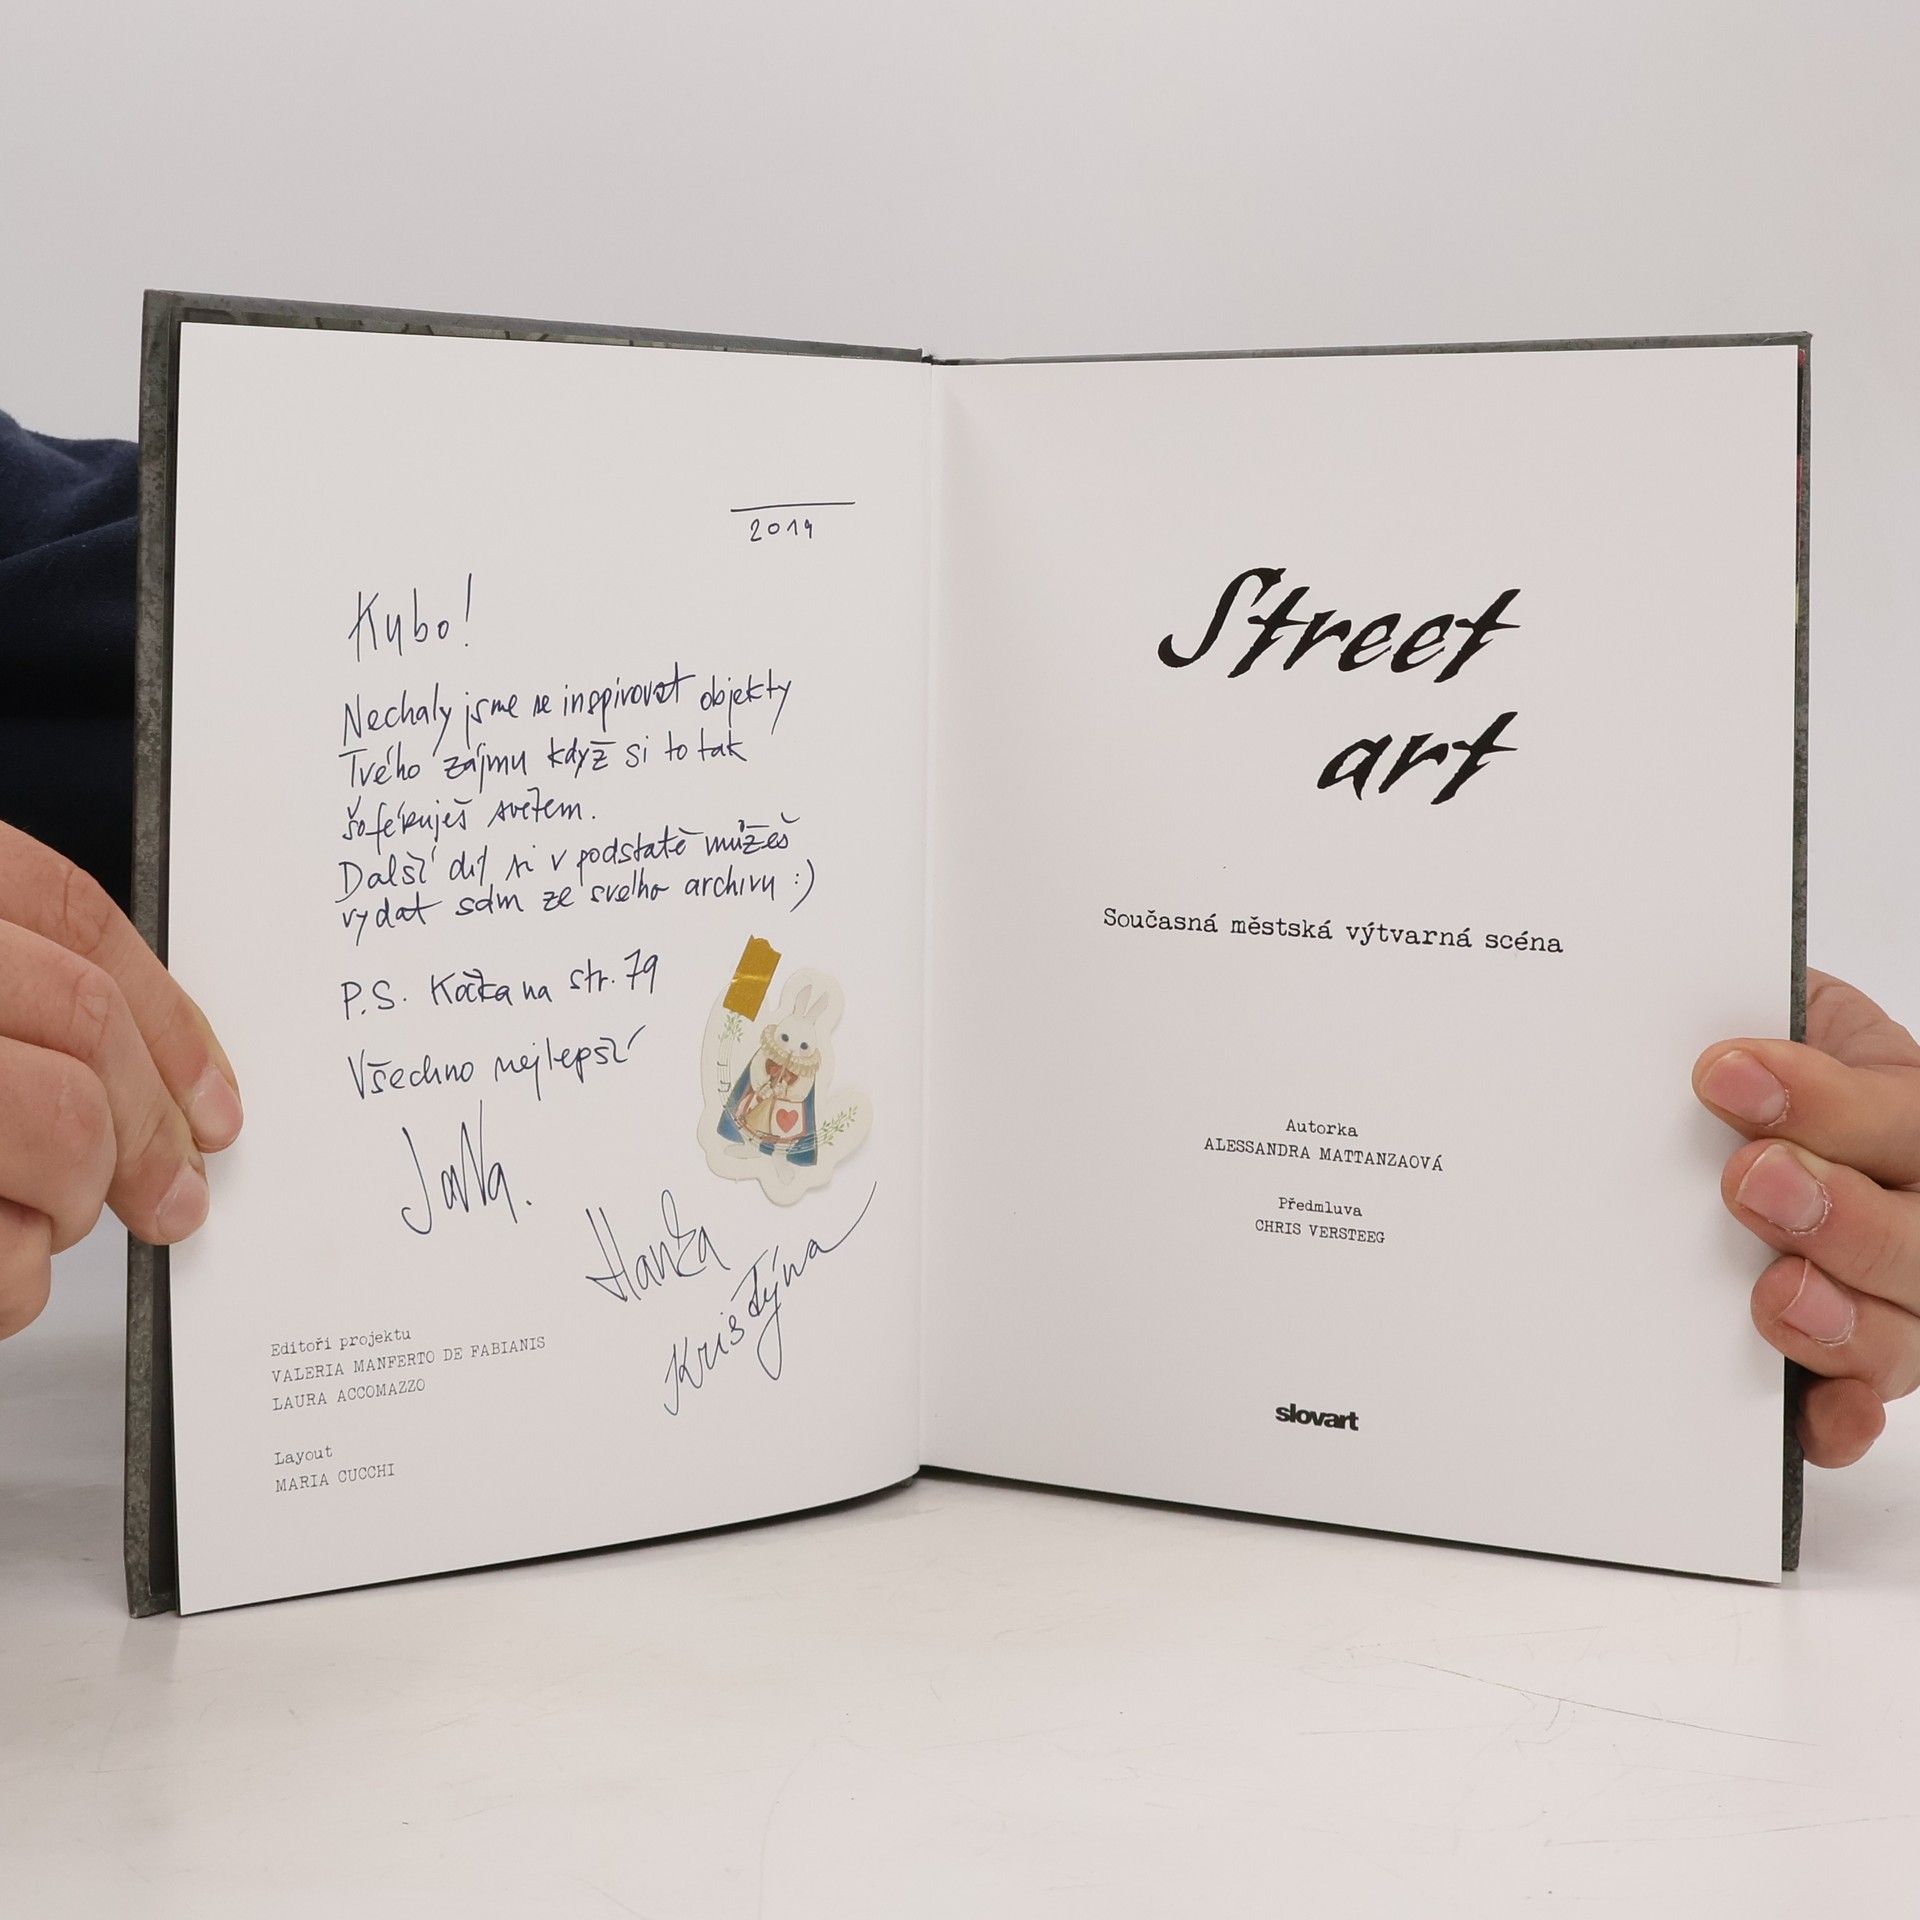 2019
Kubo!
Nechaly jsme se inspirovat objekty
Tvého zájmu když si to tak
šoféruješ světem.
Další díl si v podstatě můžeš
vydat sám ze svého archivu :)
P.S. Kočka na str. 79
Všechno nejlepší
Jana.
Hanka
Kristýna
Editoři projektu
VALERIA MANFERTO DE FABIANIS
LAURA ACCOMAZZO
Layout
MARIA CUCCHI
Street
art
Současná městská výtvarná scéna
Autorka
ALESSANDRA MATTANZAOVÁ
Předmluva
CHRIS VERSTEEG
slovart